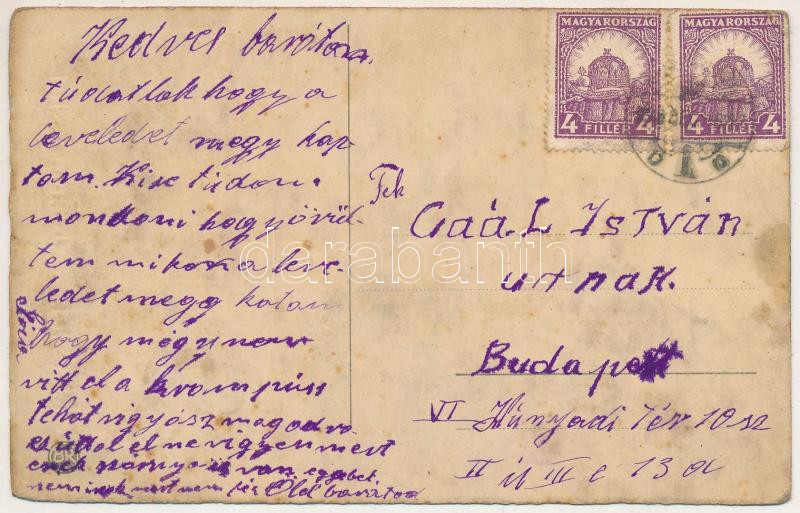 Kedves barátom
tudatlak hogy a
leveledet megy kap
tam. Kise tudom
mondani hogy örül
tem mikor a leve-
ledet megg kotam
hogy mégy nem
vitt el a krampusz
tehát vigyász magadra
el ne vigyen mert
van egyebet
nem mert nem Old baratod
MAGYARORSZÁG
4 FILLÉR 4
MAGYARORSZÁG
4 FILLÉR 4
Tek
Gaál István
urnak.
Budapest
VI Hunyadi Tér 10 sz
II ü III e 13 a
darabanth